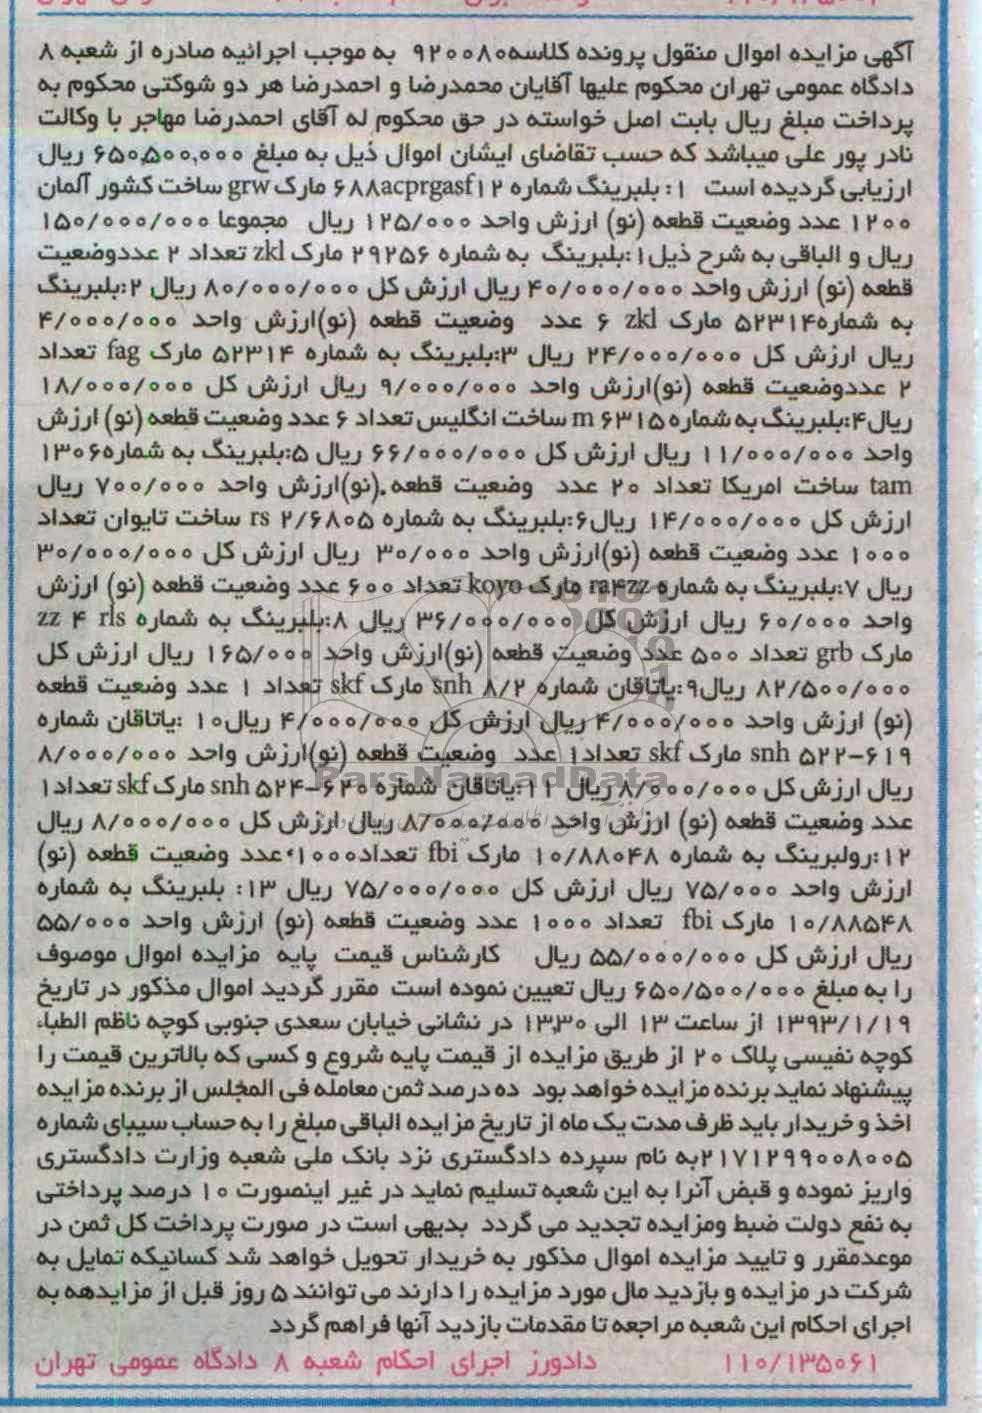 آگهی مزایده اموال منقول پرونده کلاسه۹۲۰۰۸۰ به موجب اجرائیه صادره از شعبه ۸
دادگاه عمومی تهران محکوم علیها آقایان محمدرضا و احمدرضا هر دو شوکتی محکوم به
پرداخت مبلغ ریال بابت اصل خواسته در حق محکوم له آقای احمدرضا مهاجر با وکالت
نادر پور علی میباشد که حسب تقاضای ایشان اموال ذیل به مبلغ ۶۵۰,۵۰۰,۰۰۰ ریال
ارزیابی گردیده است ۱: بلبرینگ شماره ۶۸۸acprgasf۱۲ مارک grw ساخت کشور آلمان
۱۲۰۰ عدد وضعیت قطعه (نو) ارزش واحد ۱۲۵/۰۰۰ ریال مجموعا ۱۵۰/۰۰۰/۰۰۰
ریال و الباقی به شرح ذیل۱:بلبرینگ به شماره ۲۹۲۵۶ مارک zkl تعداد ۲ عددوضعیت
قطعه (نو) ارزش واحد ۴۰/۰۰۰/۰۰۰ ریال ارزش کل ۸۰/۰۰۰/۰۰۰ ریال ۲:بلبرینگ
به شماره۵۲۳۱۴ مارک zkl ۶ عدد وضعیت قطعه (نو)ارزش واحد ۴/۰۰۰/۰۰۰
ریال ارزش کل ۲۴/۰۰۰/۰۰۰ ریال ۳:بلبرینگ به شماره ۵۲۳۱۴ مارک fag تعداد
۲ عددوضعیت قطعه (نو)ارزش واحد ۹/۰۰۰/۰۰۰ ریال ارزش کل ۱۸/۰۰۰/۰۰۰
ریال۴:بلبرینگ به شماره ۶۳۱۵ m ساخت انگلیس تعداد ۶ عدد وضعیت قطعه (نو) ارزش
واحد ۱۱/۰۰۰/۰۰۰ ریال ارزش کل ۶۶/۰۰۰/۰۰۰ ریال ۵:بلبرینگ به شماره۱۳۰۶
tam ساخت امریکا تعداد ۲۰ عدد وضعیت قطعه.(نو)ارزش واحد ۷۰۰/۰۰۰ ریال
ارزش کل ۱۴/۰۰۰/۰۰۰ ریال۶:بلبرینگ به شماره ۲/۶۸۰۵ rs ساخت تایوان تعداد
۱۰۰۰ عدد وضعیت قطعه (نو)ارزش واحد ۳۰/۰۰۰ ریال ارزش کل ۳۰/۰۰۰/۰۰۰
ریال ۷:بلبرینگ به شماره ra۴zz مارک koyo تعداد ۶۰۰ عدد وضعیت قطعه (نو) ارزش
واحد ۶۰/۰۰۰ ریال ارزش کل ۳۶/۰۰۰/۰۰۰ ریال ۸:بلبرینگ به شماره zz ۴ rls
مارک grb تعداد ۵۰۰ عدد وضعیت قطعه (نو)ارزش واحد ۱۶۵/۰۰۰ ریال ارزش کل
۸۲/۵۰۰/۰۰۰ ریال۹:یاتاقان شماره snh ۸/۲ مارک skf تعداد ۱ عدد وضعیت قطعه
(نو) ارزش واحد ۴/۰۰۰/۰۰۰ ریال ارزش کل ۴/۰۰۰/۰۰۰ ریال۱۰ :یاتاقان شماره
snh ۵۲۲-۶۱۹ مارک skf تعداد۱ عدد وضعیت قطعه (نو)ارزش واحد ۸/۰۰۰/۰۰۰
ریال ارزش کل ۸/۰۰۰/۰۰۰ ریال ۱۱:یاتاقان شماره snh ۵۲۴-۶۲۰ مارک skf تعداد۱
عدد وضعیت قطعه (نو) ارزش واحد ۸/۰۰۰/۰۰۰ ریال ارزش کل ۸/۰۰۰/۰۰۰ ریال
۱۲:رولبرینگ به شماره ۱۰/۸۸۰۴۸ مارک fbi تعداد۱۰۰۰ عدد وضعیت قطعه (نو)
ارزش واحد ۷۵/۰۰۰ ریال ارزش کل ۷۵/۰۰۰/۰۰۰ ریال ۱۳: بلبرینگ به شماره
۱۰/۸۸۵۴۸ مارک fbi تعداد ۱۰۰۰ عدد وضعیت قطعه (نو) ارزش واحد ۵۵/۰۰۰
ریال ارزش کل ۵۵/۰۰۰/۰۰۰ ریال کارشناس قیمت پایه مزایده اموال موصوف
را به مبلغ ۶۵۰/۵۰۰/۰۰۰ ریال تعیین نموده است مقرر گردید اموال مذکور در تاریخ
۱۳۹۳/۱/۱۹ از ساعت ۱۳ الی ۱۳,۳۰ در نشانی خیابان سعدی جنوبی کوچه ناظم الطباء
کوچه نفیسی پلاک ۲۰ از طریق مزایده از قیمت پایه شروع و کسی که بالاترین قیمت را
پیشنهاد نماید برنده مزایده خواهد بود ده درصد ثمن معامله فی المجلس از برنده مزایده
اخذ و خریدار باید ظرف مدت یک ماه از تاریخ مزایده الباقی مبلغ را به حساب سیبای شماره
۲۱۷۱۲۹۹۰۰۸۰۰۵به نام سپرده دادگستری نزد بانک ملی شعبه وزارت دادگستری
واریز نموده و قبض آنرا به این شعبه تسلیم نماید در غیر اینصورت ۱۰ درصد پرداختی
به نفع دولت ضبط ومزایده تجدید می گردد بدیهی است در صورت پرداخت کل ثمن در
موعدمقرر و تایید مزایده اموال مذکور به خریدار تحویل خواهد شد کسانیکه تمایل به
شرکت در مزایده و بازدید مال مورد مزایده را دارند می توانند ۵ روز قبل از مزایدهه به
اجرای احکام این شعبه مراجعه تا مقدمات بازدید آنها فراهم گردد
۱۱۰/۱۳۵۰۶۱ دادورز اجرای احکام شعبه ۸ دادگاه عمومی تهران
ParsNamadData